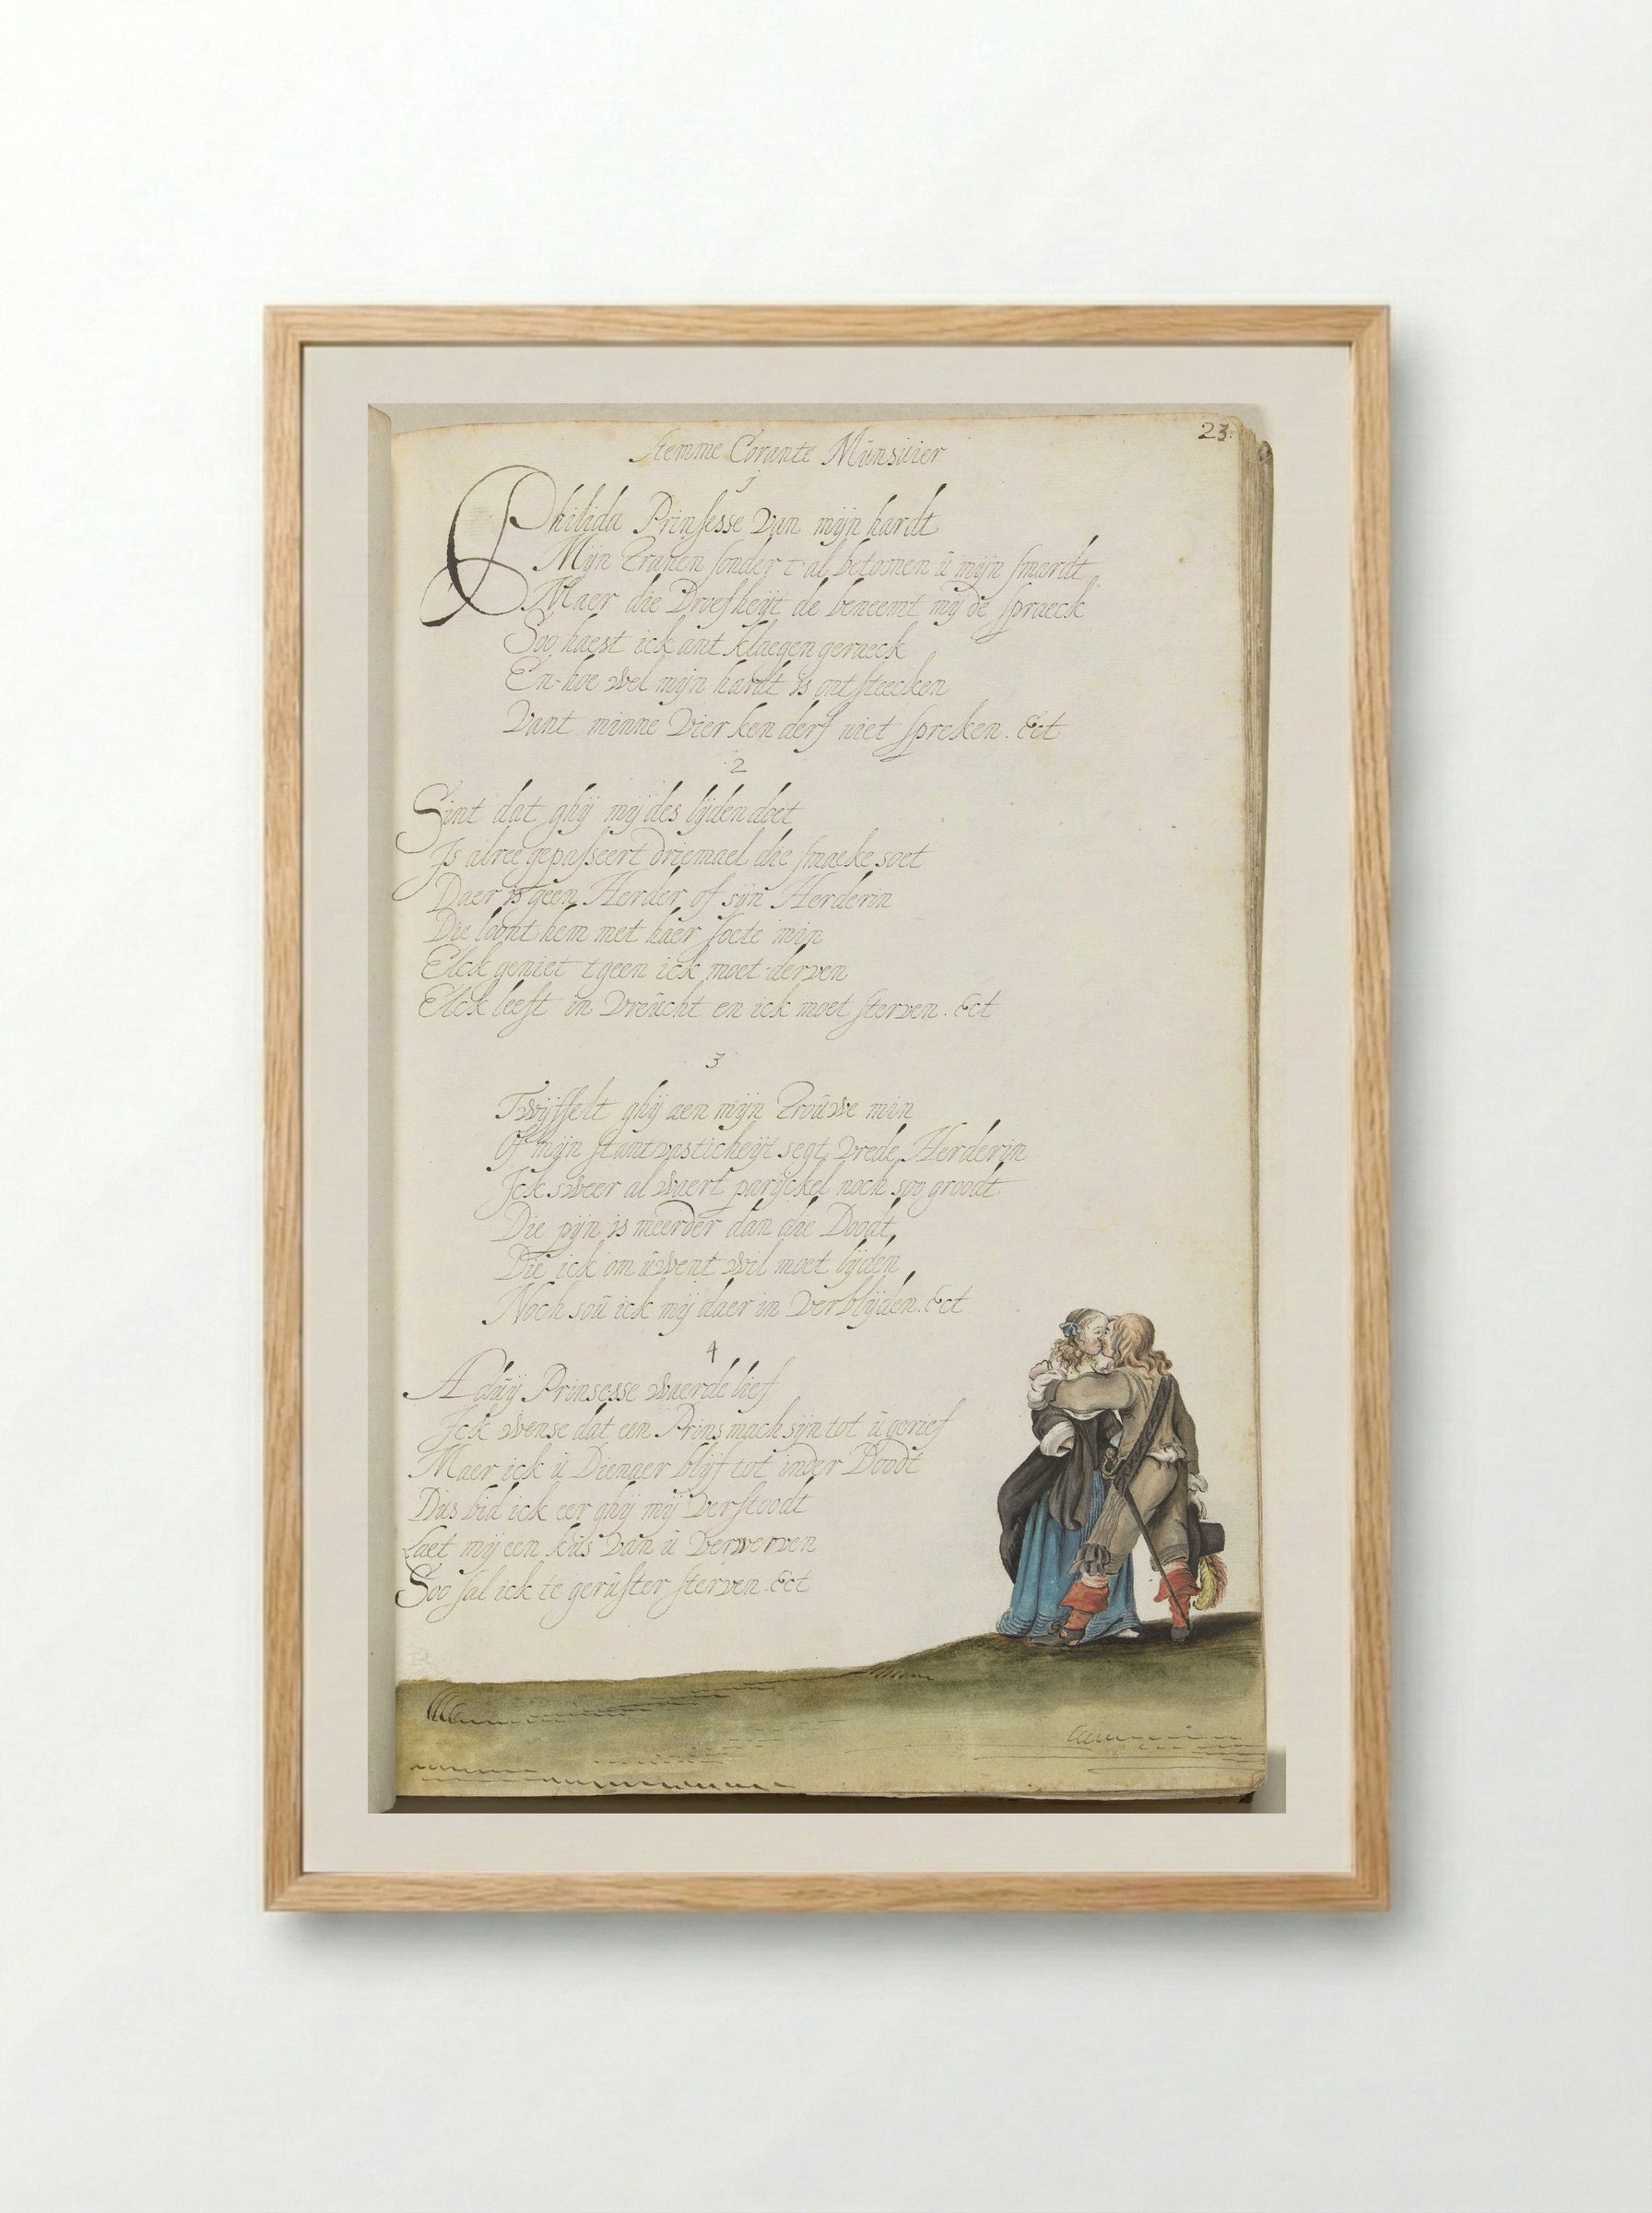 Stemme Corante Munsuier
23
1
Philida Prinsesse van mijn hardt
Mijn Tranen sonder t al betoonen ú mijn smardt
Maer die Droefheijt de beneemt mij de spraeck
Soo haest ick ant klaegen geraeck
En hoe wel mijn hardt is ontsteecken
Vant minne vier ken derf niet spreken. &ct
2
Sint dat ghij mij des lijden doet
Is alree gepasseert driemael die smaeke soet
Daer is geen Herder of sijn Herderin
Die loont hem met haer soete min
Elck geniet t geen ick moet derven
Elck leeft in vreúcht en ick moet sterven. &ct
3
Twijffelt ghij aen mijn Troúwe min
Of mijn stantvasticheijt segt vrede Herderin
Ick sweer al waert parijckel noch soo groodt
Die pijn is meerder dan die Doodt
Die ick om úwent wil moet lijden
Noch soú ick mij daer in verblijden. &ct
4
Adúij Prinsesse waerde lief
Ick wense dat een Prins mach sijn tot ú gerief
Maer ick ú Dienaer blijf tot inder Doodt
Dús bid ick eer ghij mij verstoodt
Laet mij een kús van ú verwerven
Soo sal ick te gerúster sterven. &ct